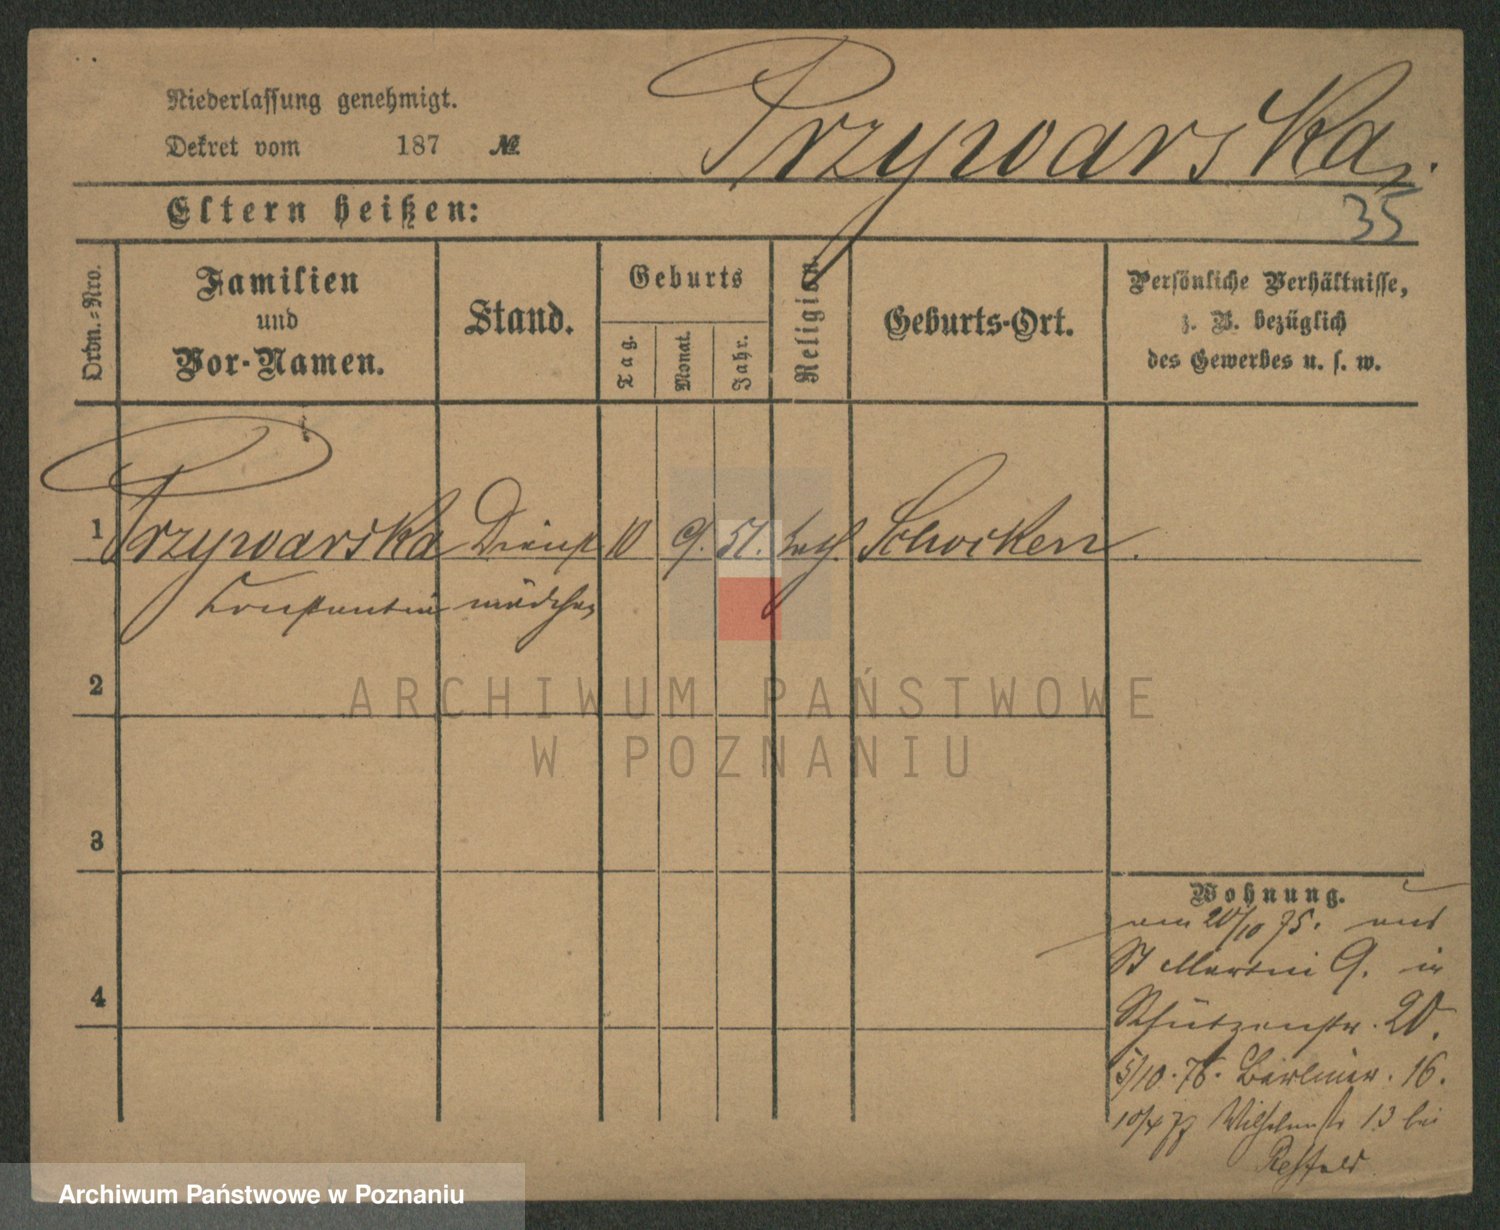 Niederlassung genehmigt.
Dekret vom 187 №
Przywarska.
Eltern heißen:
35
Ordn.-Nro.
Familien
und
Vor-Namen.
Stand.
Geburts
Tag.
Monat.
Jahr.
Religion
Geburts-Ort.
Persönliche Verhältnisse,
z. B. bezüglich
des Gewerbes u. s. w.
1 Przywarska Dienst 10 9. 51. kath. Schocken.
Konstantin mädchen
2
3
4
Wohnung.
vom 20/10 75. aus
St Martin 9. in
Schützenstr. 20.
5/10. 76. Berliner. 16.
10/4 77 Wilhelmstr 13 bei
ARCHIWUM PAŃSTWOWE
W POZNANIU
Archiwum Państwowe w Poznaniu